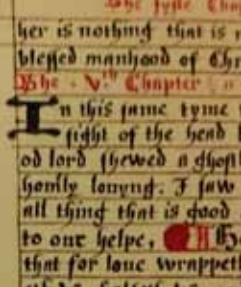 The fyfte Cha
her is nothing that is
blessed manhood of Chr
The . Vth Chapter
In this same tyme
sight of the head
od lord shewed a ghost
homly louyng. I saw
all thing that is good
to our helpe,
that for loue wrappeth